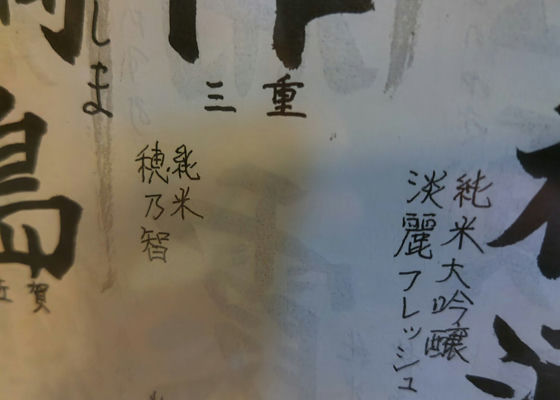 純米大吟醸
淡麗フレッシュ
三重
純米
穂乃智
しま
島
賀